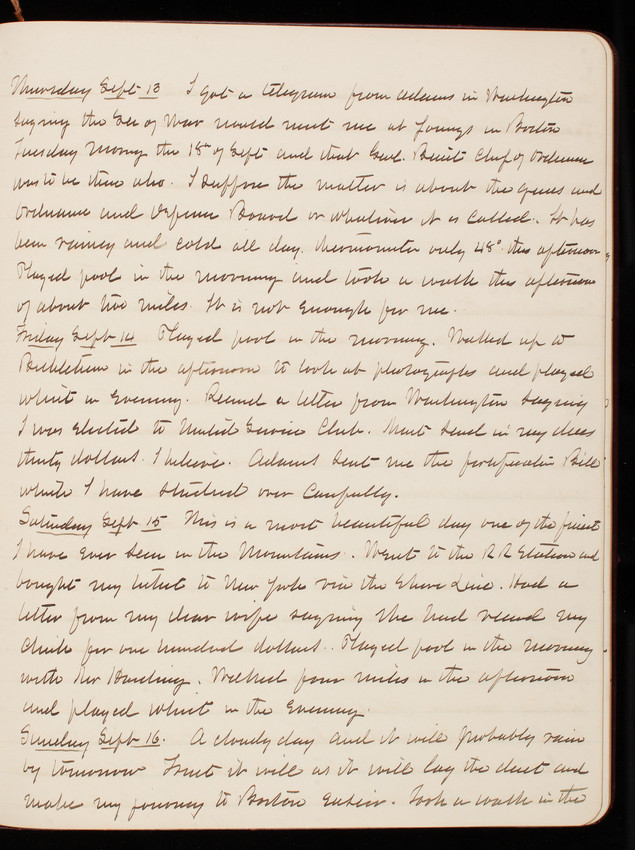 Thursday Sept 13 I got a telegram from Adams in Washington
saying the Sec of War would meet me at Youngs in Boston
Tuesday Morng the 18th of Sept and that Genl. Benét Chf of Ordnance
was to be there also. I suppose the matter is about the guns and
Ordnance and Defense Board or whatever it is called. It has
been rainy and cold all day. Thermometer only 48° this afternoon
Played pool in the morning and took a walk this afternoon
of about two miles. It is not enough for me.
Friday Sept 14 Played pool in the morning. Walked up to
Bethlehem in the afternoon to look at photographs and played
whist in Evening. Recved a letter from Washington saying
I was elected to United Service Club. Must send in my dues
thirty dollars I believe. Adams sent me the fortification Bill
which I have studied over Carefully.
Saturday Sept 15 This is a most beautiful day one of the finest
I have ever seen in the Mountains. Went to the RR Station and
bought my ticket to New York via the Shore Line. Had a
letter from my dear wife saying she had recved my
Check for one hundred dollars. Played pool in the morning
with Mr Harding. Walked four miles in the afternoon
and played whist in the Evening.
Sunday Sept 16. A cloudy day and it will probably rain
by tomorrow Trust it will as it will lay the dust and
make my journey to Boston Easier. Took a walk in the